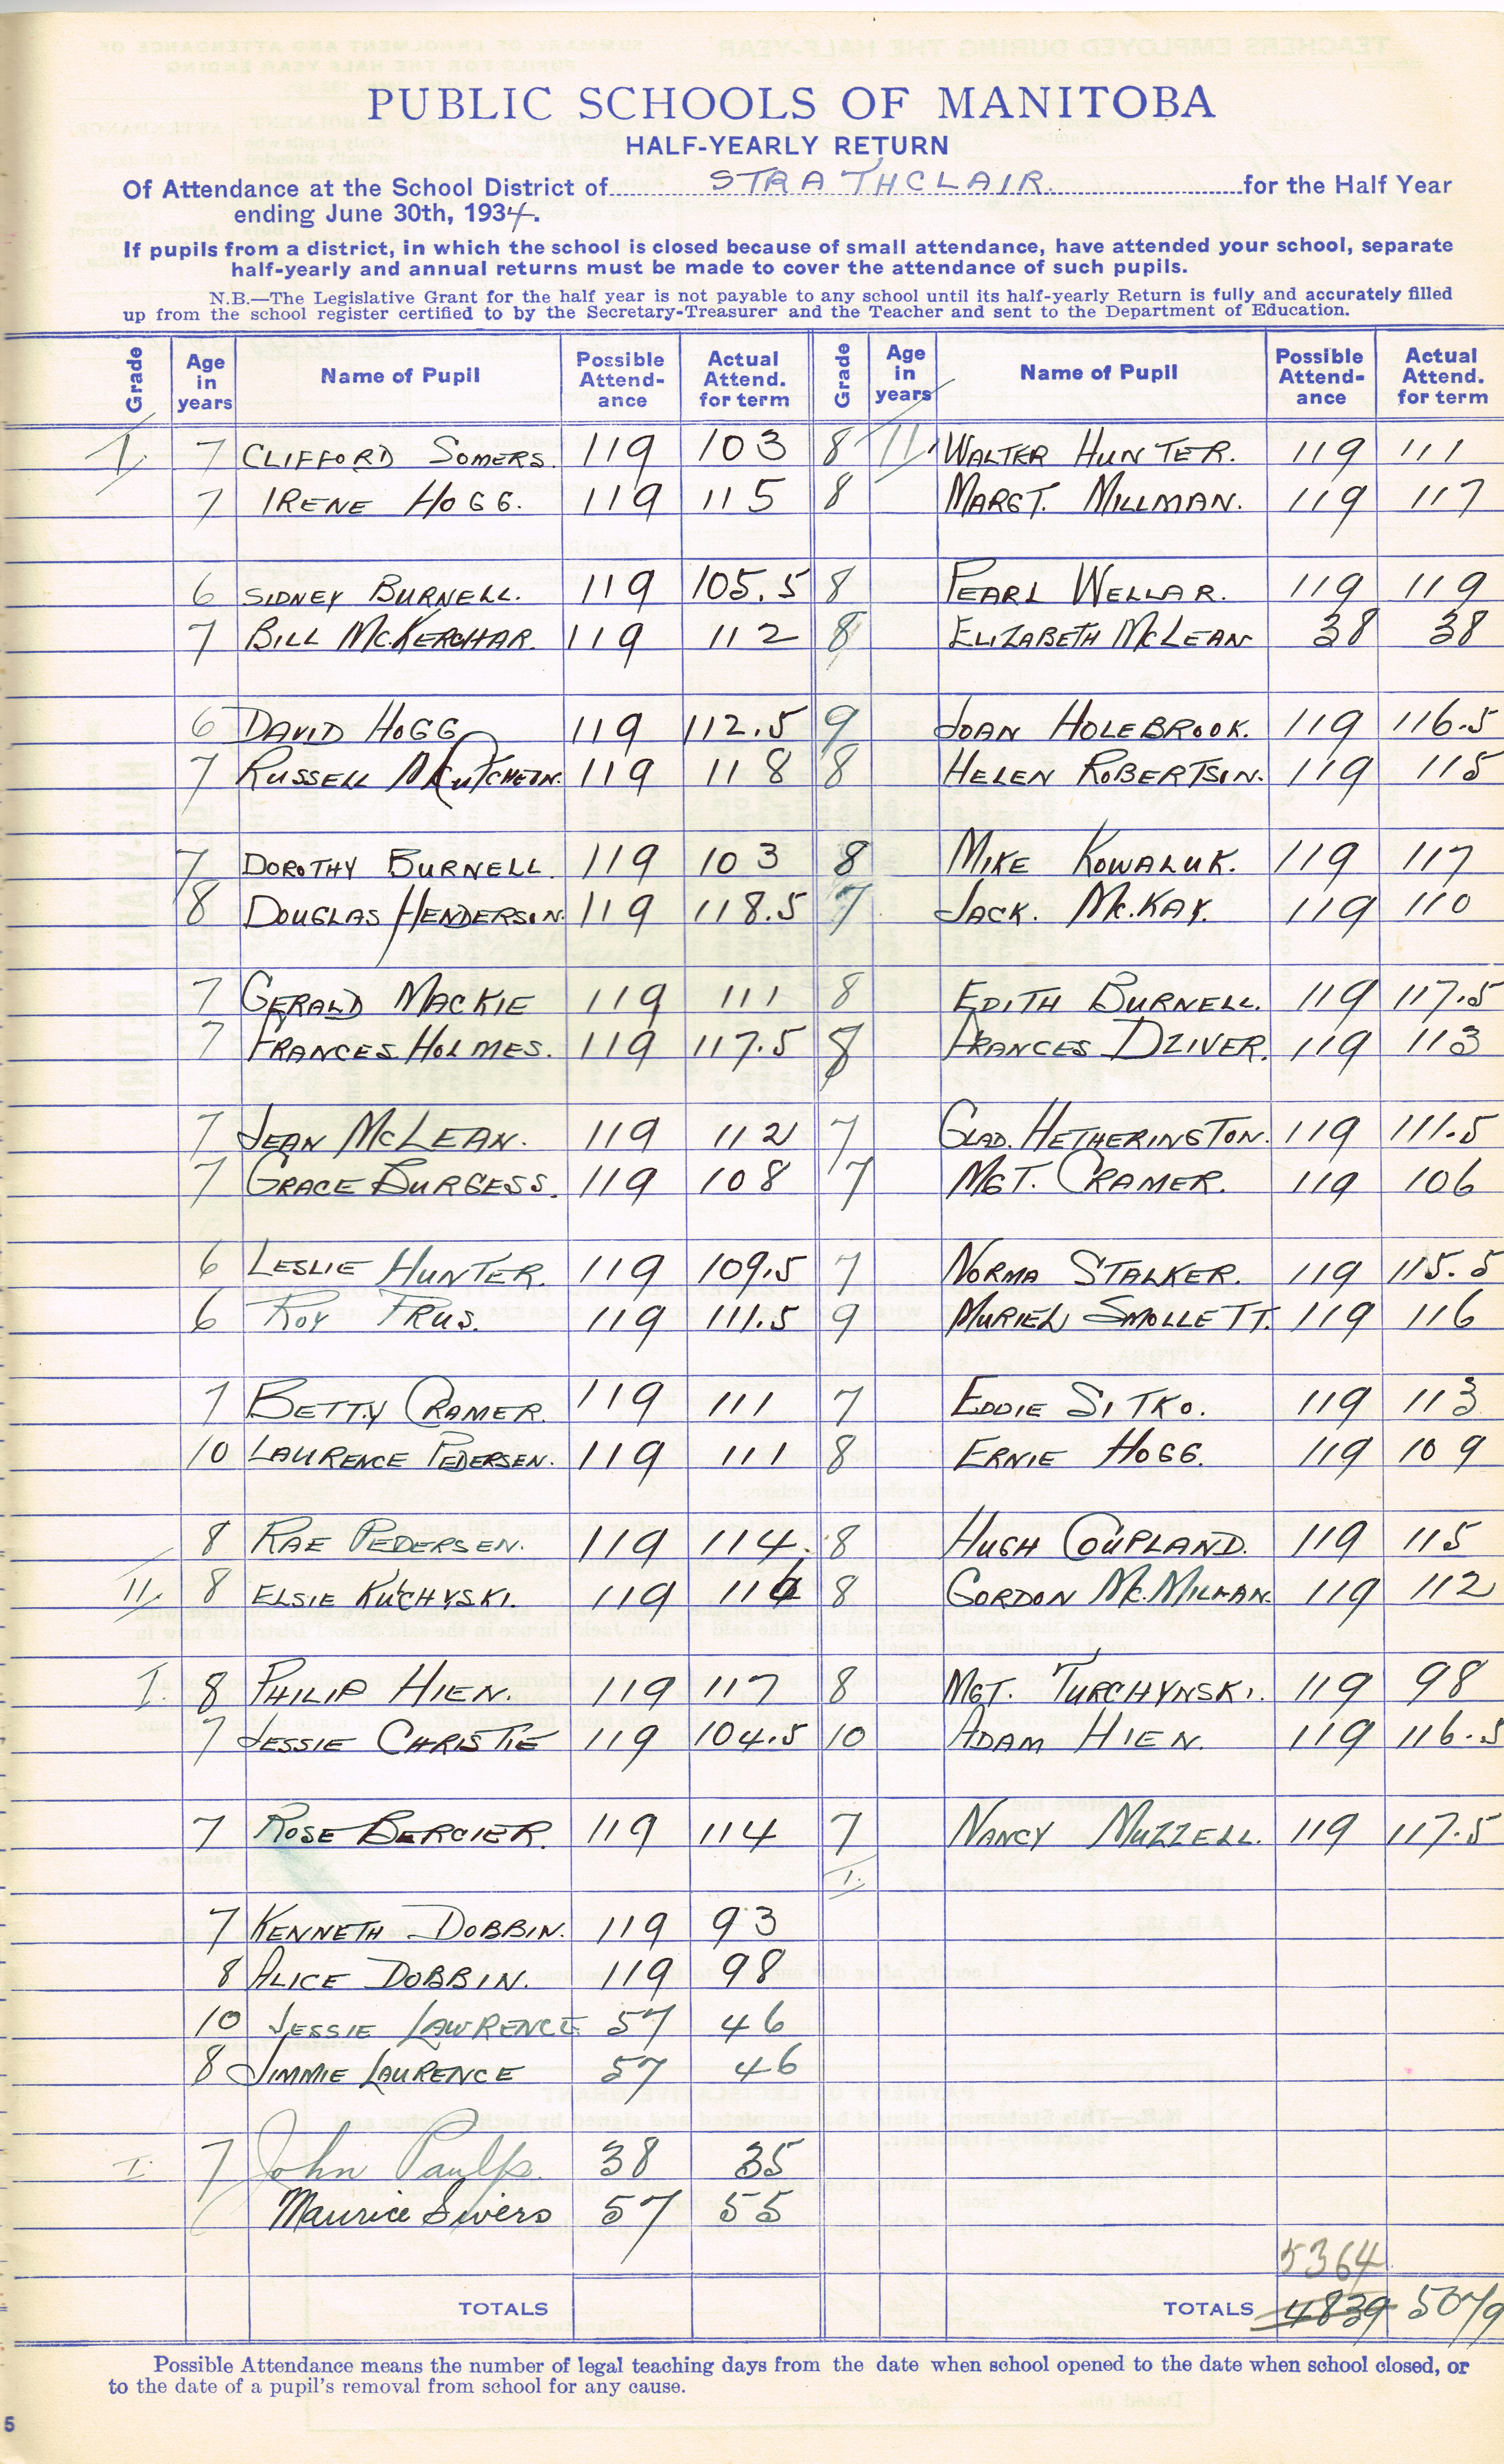 PUBLIC SCHOOLS OF MANITOBA
HALF-YEARLY RETURN
Of Attendance at the School District of STRATHCLAIR. for the Half Year
ending June 30th, 1934.
If pupils from a district, in which the school is closed because of small attendance, have attended your school, separate
half-yearly and annual returns must be made to cover the attendance of such pupils.
N.B.—The Legislative Grant for the half year is not payable to any school until its half-yearly Return is fully and accurately filled
up from the school register certified to by the Secretary-Treasurer and the Teacher and sent to the Department of Education.
Grade Age in years Name of Pupil Possible Attend-ance Actual Attend. for term Grade Age in years Name of Pupil Possible Attend-ance Actual Attend. for term
I. 7 CLIFFORD SOMERS. 119 103 8 11 WALTER HUNTER. 119 111
7 IRENE HOGG. 119 115 8 MARGT. MILLMAN. 119 117
6 SIDNEY BURNELL. 119 105.5 8 PEARL WELLAR. 119 119
7 BILL McKERCHAR. 119 112 8 ELIZABETH McLEAN 38 38
6 DAVID HOGG 119 112.5 9 JOAN HOLEBROOK. 119 116.5
7 RUSSELL McCUTCHEON. 119 118 8 HELEN ROBERTSON. 119 115
7 DOROTHY BURNELL. 119 103 8 MIKE KOWALUK. 119 117
8 DOUGLAS HENDERSON. 119 118.5 7 JACK. Mc.KAY. 119 110
7 GERALD MACKIE 119 111 8 EDITH BURNELL. 119 117.5
7 FRANCES HOLMES. 119 117.5 8 FRANCES DZIVER. 119 113
7 JEAN McLEAN. 119 112 7 GLAD. HETHERINGTON. 119 111.5
7 GRACE BURGESS. 119 108 7 MGT. CRAMER. 119 106
6 LESLIE HUNTER. 119 109.5 7 NORMA STALKER. 119 115.5
6 ROY TRUS. 119 111.5 9 MURIEL SMOLLETT. 119 116
7 BETTY CRAMER. 119 111 7 EDDIE SITKO. 119 113
10 LAURENCE PEDERSEN. 119 111 8 ERNIE HOGG. 119 109
8 RAE PEDERSEN. 119 114. 8 HUGH COUPLAND. 119 115
II. 8 ELSIE KUCHYSKI. 119 116 8 GORDON Mc.MILLAN. 119 112
I. 8 PHILIP HIEN. 119 117 8 MGT. TURCHYNSKI. 119 98
7 JESSIE CHRISTIE 119 104.5 10 ADAM HIEN. 119 116.5
7 ROSE BERCIER. 119 114 7 NANCY MUZZELL. 119 117.5
I.
7 KENNETH DOBBIN. 119 93
8 ALICE DOBBIN. 119 98
10 JESSIE LAWRENCE 57 46
8 JIMMIE LAURENCE 57 46
I. 7 John Paulp. 38 35
Maurice Sivers 57 55
5364
TOTALS TOTALS 4839 5079
Possible Attendance means the number of legal teaching days from the date when school opened to the date when school closed, or
to the date of a pupil's removal from school for any cause.
5